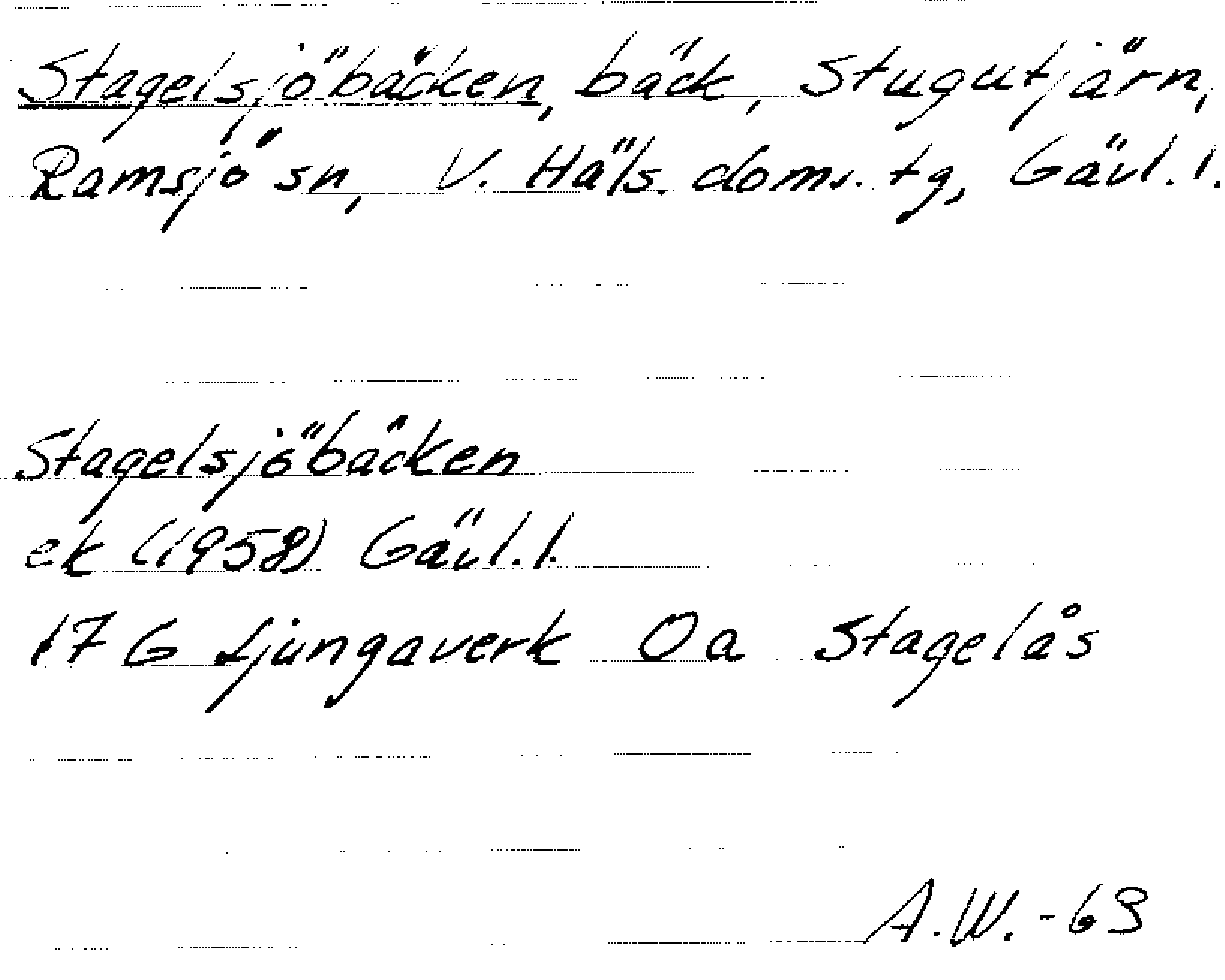 Stagelsjöbäcken, bäck, Stugutjärn,
Ramsjö sn, V. Häls. doms. tg, Gävl. l.
Stagelsjöbäcken
ek (1958) Gävl. l.
17 G Ljungaverk Oa Stagelås
A.W.-63